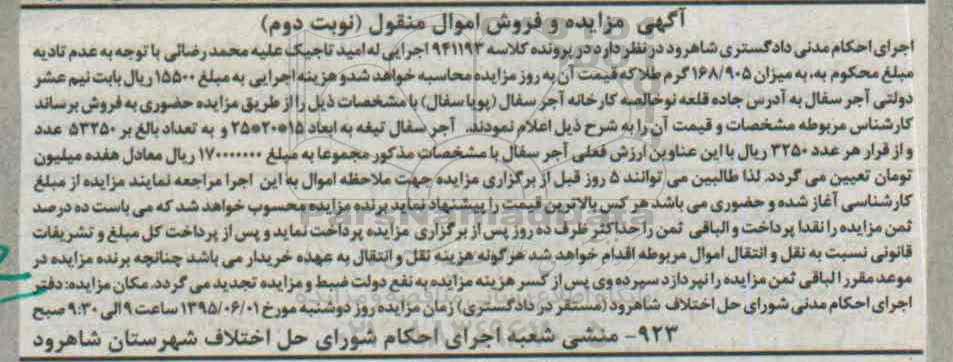 آگهی مزایده و فروش اموال منقول (نوبت دوم)
اجرای احکام مدنی دادگستری شاهرود در نظر دارد در پرونده کلاسه ۹۴۱۱۹۳ اجرایی له امید تاجیک علیه محمد رضائی با توجه به عدم تادیه
مبلغ محکوم به، به میزان ۱۶۸/۹۰۵ گرم طلا که قیمت آن به روز مزایده محاسبه خواهد شد و هزینه اجرایی به مبلغ ۱۵۵۰۰ ریال بابت نیم عشر
دولتی آجر سفال به آدرس جاده قلعه نوخالصه کارخانه آجر سفال (پویا سفال) با مشخصات ذیل را از طریق مزایده حضوری به فروش برساند
کارشناس مربوطه مشخصات و قیمت آن را به شرح ذیل اعلام نمودند. آجر سفال تیغه به ابعاد ۱۵*۲۰*۲۵ و به تعداد بالغ بر ۵۳۲۵۰ عدد
و از قرار هر عدد ۳۲۵۰ ریال با این عناوین ارزش فعلی آجر سفال با مشخصات مذکور مجموعا به مبلغ ۱۷۰۰۰۰۰۰۰ ریال معادل هفده میلیون
تومان تعیین می گردد. لذا طالبین می توانند ۵ روز قبل از برگزاری مزایده جهت ملاحظه اموال به این اجرا مراجعه نمایند مزایده از مبلغ
کارشناسی آغاز شده و حضوری می باشد هر کس بالاترین قیمت را پیشنهاد نماید برنده مزایده محسوب خواهد شد که می باست ده درصد
ثمن مزایده را نقدا پرداخت و الباقی ثمن را حداکثر ظرف ده روز پس از برگزاری مزایده پرداخت نماید و پس از پرداخت کل مبلغ و تشریفات
قانونی نسبت به نقل و انتقال اموال مربوطه اقدام خواهد شد هرگونه هزینه نقل و انتقال به عهده خریدار می باشد چنانچه برنده مزایده در
موعد مقرر الباقی ثمن مزایده را نپردازد سپرده وی پس از کسر هزینه مزایده به نفع دولت ضبط و مزایده تجدید می گردد. مکان مزایده: دفتر
اجرای احکام مدنی شورای حل اختلاف شاهرود (مستقر در دادگستری) زمان مزایده روز دوشنبه مورخ ۱۳۹۵/۰۶/۰۱ ساعت ۹ الی ۹:۳۰ صبح
۹۲۳- منشی شعبه اجرای احکام شورای حل اختلاف شهرستان شاهرود
ParsNamadData